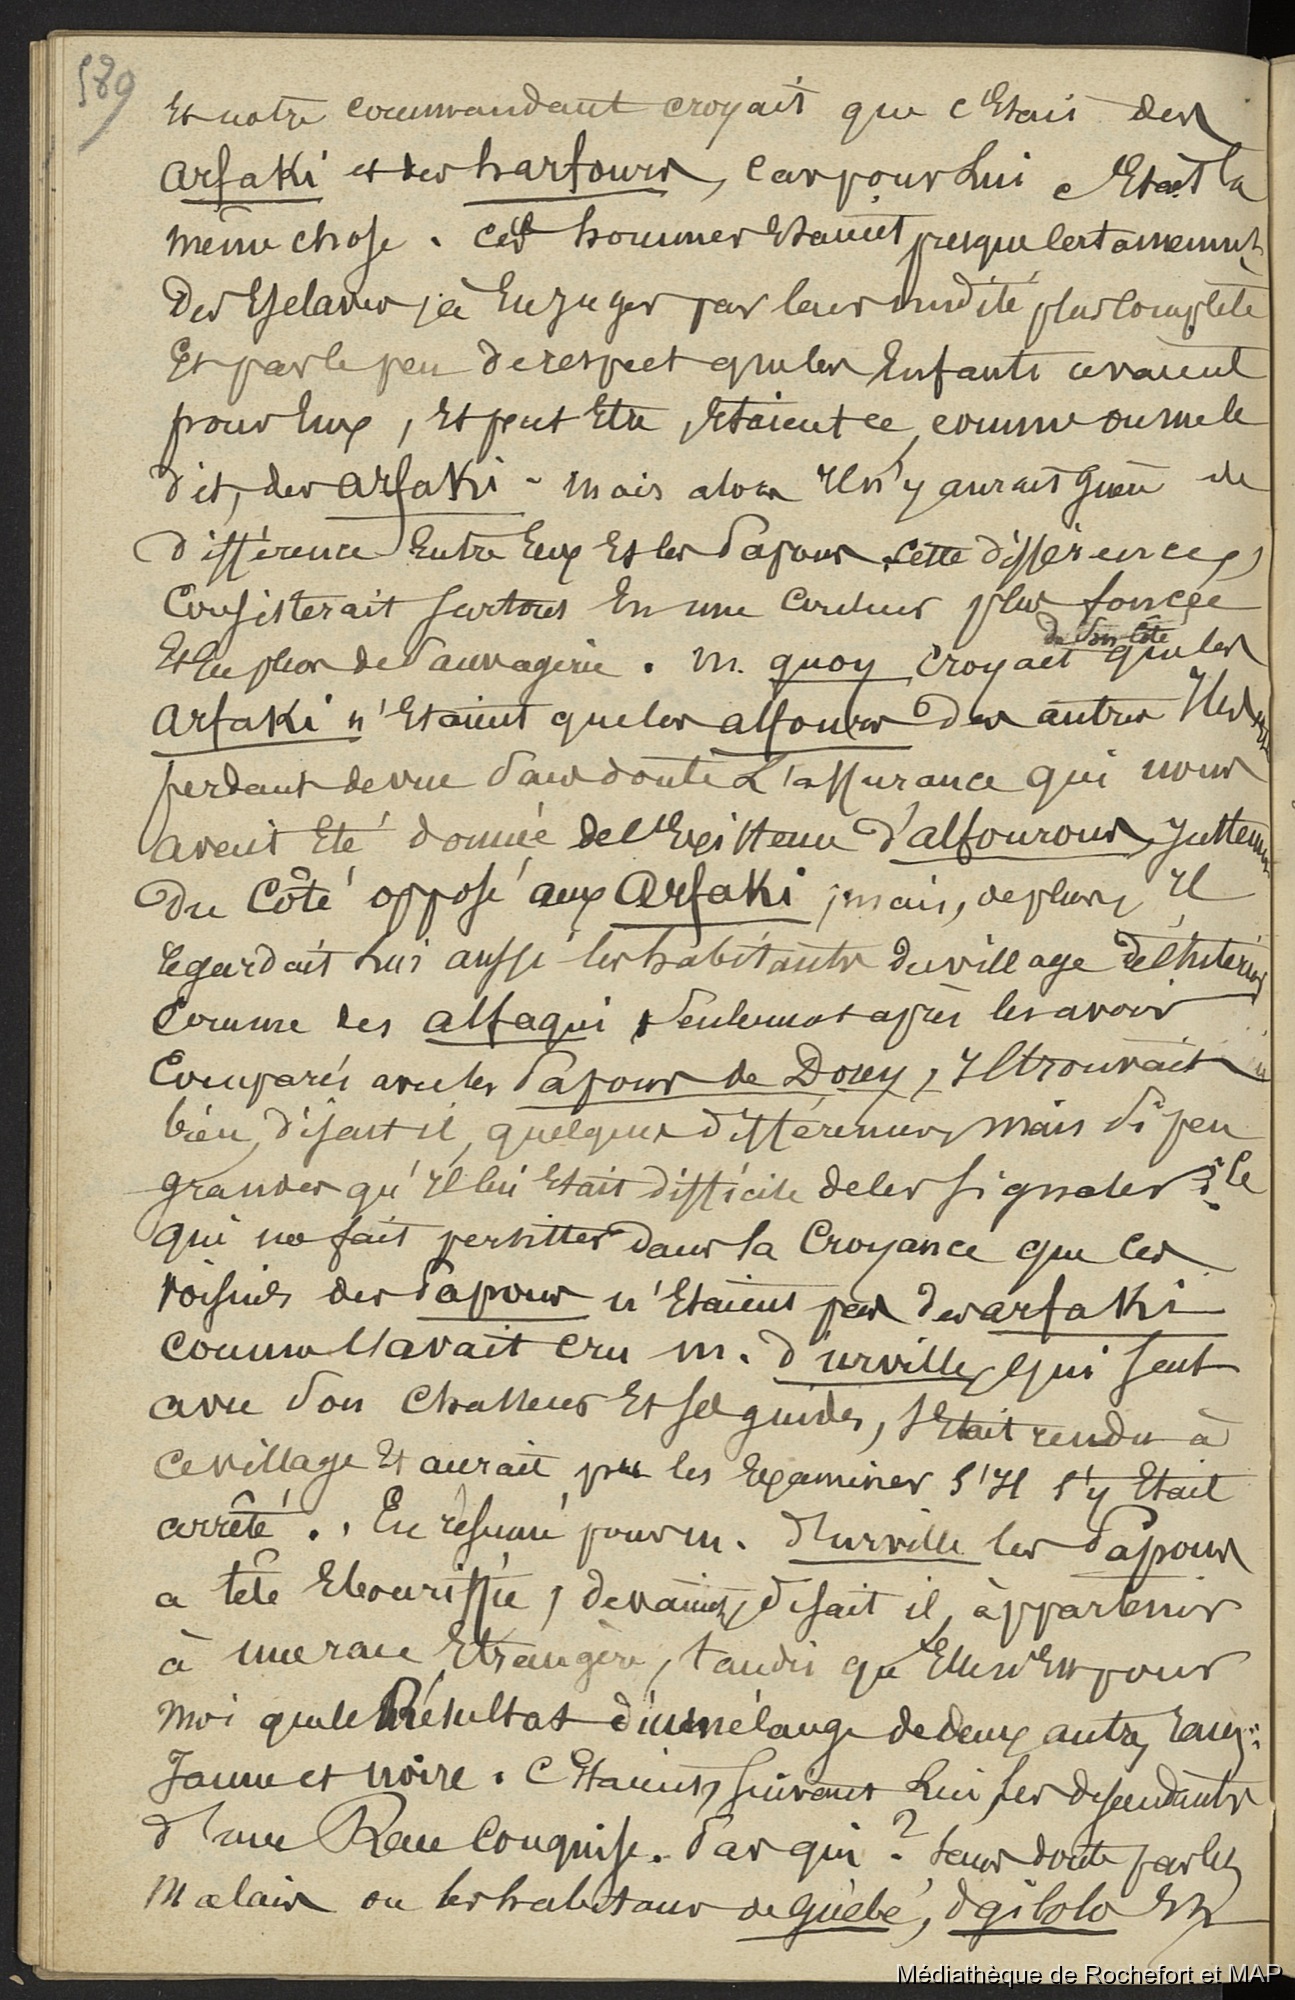 589
Et notre commandant croyait que c'Etait des
arfaki et des harfours, car pour Lui c'Etait la
même chose. ces hommes Etaient presque certainement
Des Esclaves, à En juger par leur nudité plus complète
Et par le peu de respect que les Enfants avaient
pour Eux, Et peut Etre, Etaient ce, comme on me le
dit, des arfaki - mais alors Il n'y aurait Guère de
différence Entre Eux Et les Papous. cette différence,
Consisterait surtout En une couleur plus foncée
Et En plus de Sauvagerie. M. quoy croyait de son côté que les
arfaki n'Etaient que les alfours des autres Iles
perdant de vue Sans doute L'assurance qui nous
avait Eté donnée de l'Existence d'alfourous, Justement
Du Côté opposé aux Arfaki; mais, de plus, Il
regardait Lui aussi les habitants du village de l'Intérieur
Comme des alfaqui Seulement après les avoir
Comparés avec les Papous de Dorey, Il trouvait
bien, disait il, quelques différences, mais Si peu
grandes qu'Il lui Etait difficile de les signaler: Ce
qui me fait persister dans la Croyance que ces
voisins des Papous n'Etaient pas des arfaki
comme l'avait cru M. d'urville, qui seul
avec Son Chasseur Et ses guides, s'Etait rendu à
ce village Et aurait pu les Examiner s'Il s'y Etait
arrêté.. En résumé pour M. d'urville les Papous
a tête Ebouriffée, devaient, disait il, appartenir
à une race Etrangère, tandis qu'Elle n'Est pour
moi que le Résultat d'un mélange de deux autres races:
Jaune et noire. C'Etaient, suivant Lui, les descendants
d'une Race Conquise. Par qui? Sans doute par les
Malais ou les habitans de Guébé, dgilolo Et
Médiathèque de Rochefort et MAP